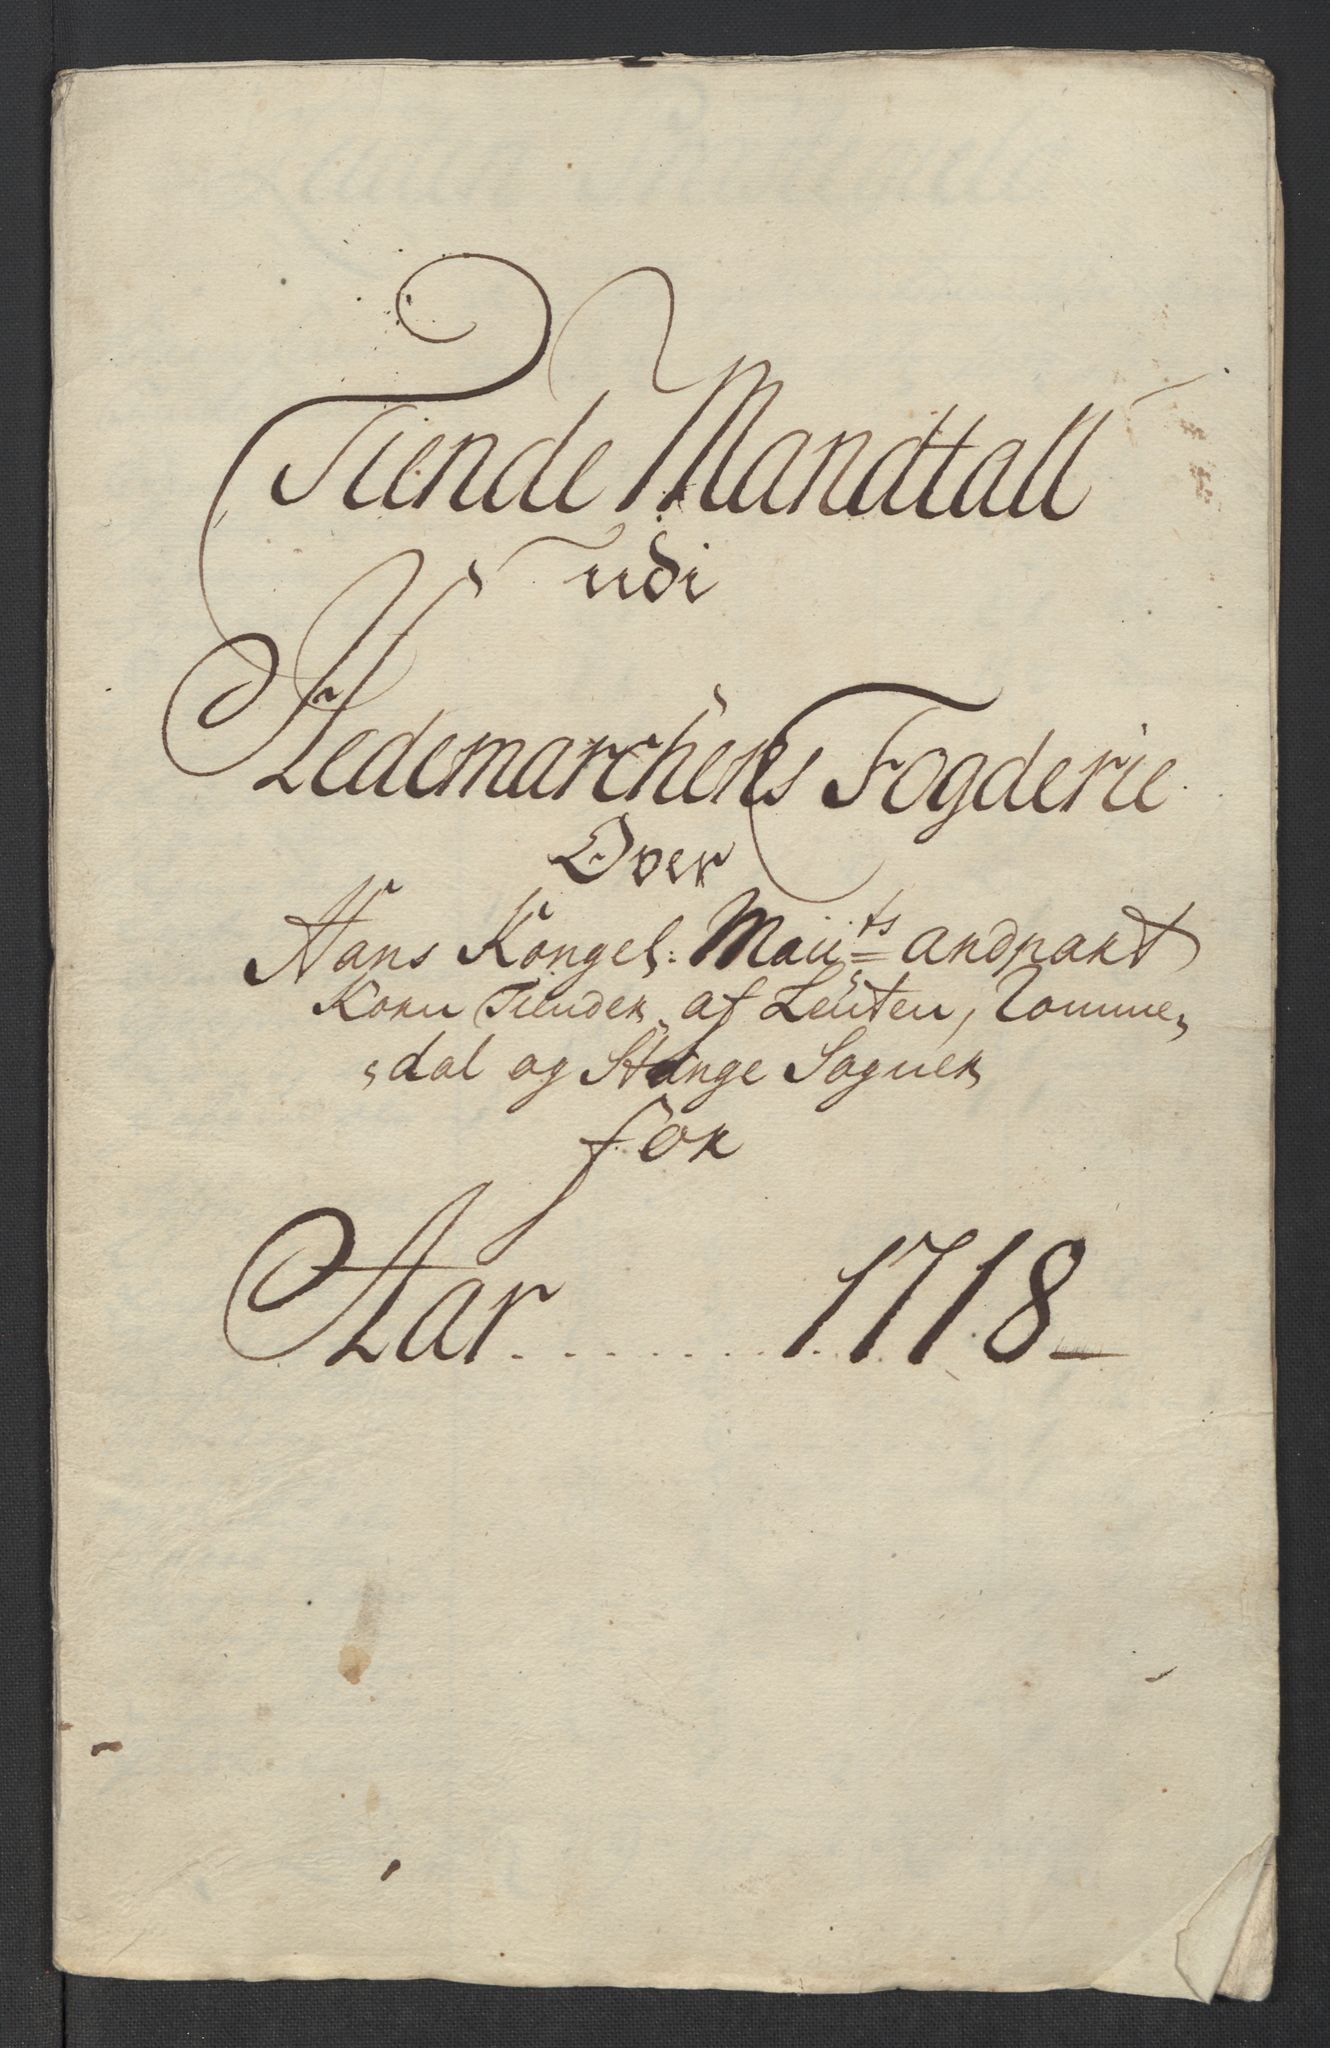 Tiende Mandtall
udi
Hedemarchens Fogderie
Over
Hans Kongel: Maii:ts andpart
Korn Tiender af Leuten, Romme,
,dal og Stange Sogner
for
Aar ........ 1718